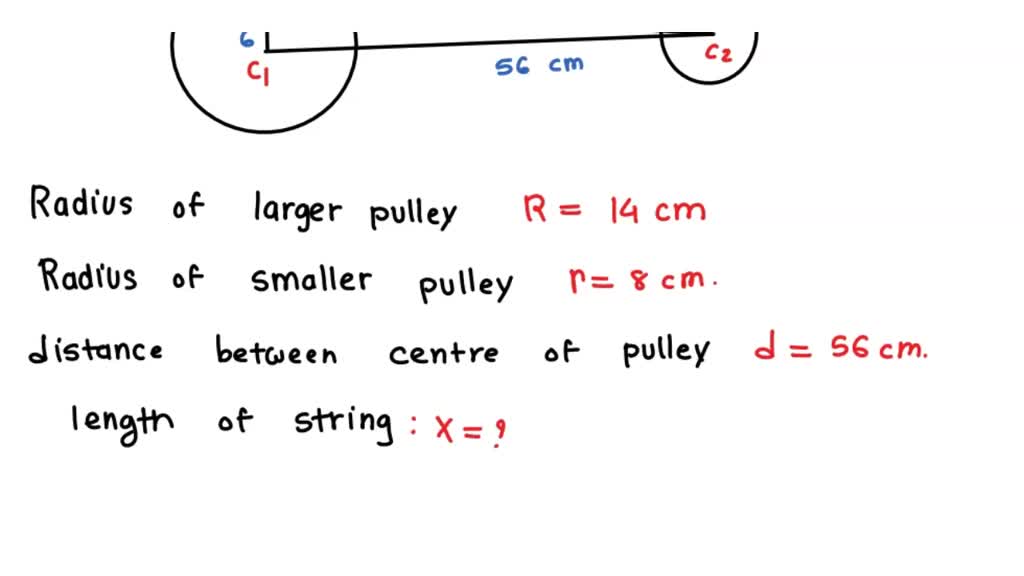 6
C1
56 cm
C2
Radius of larger pulley R = 14 cm
Radius of smaller pulley r = 8 cm.
distance between centre of pulley d = 56 cm.
length of string : X = ?